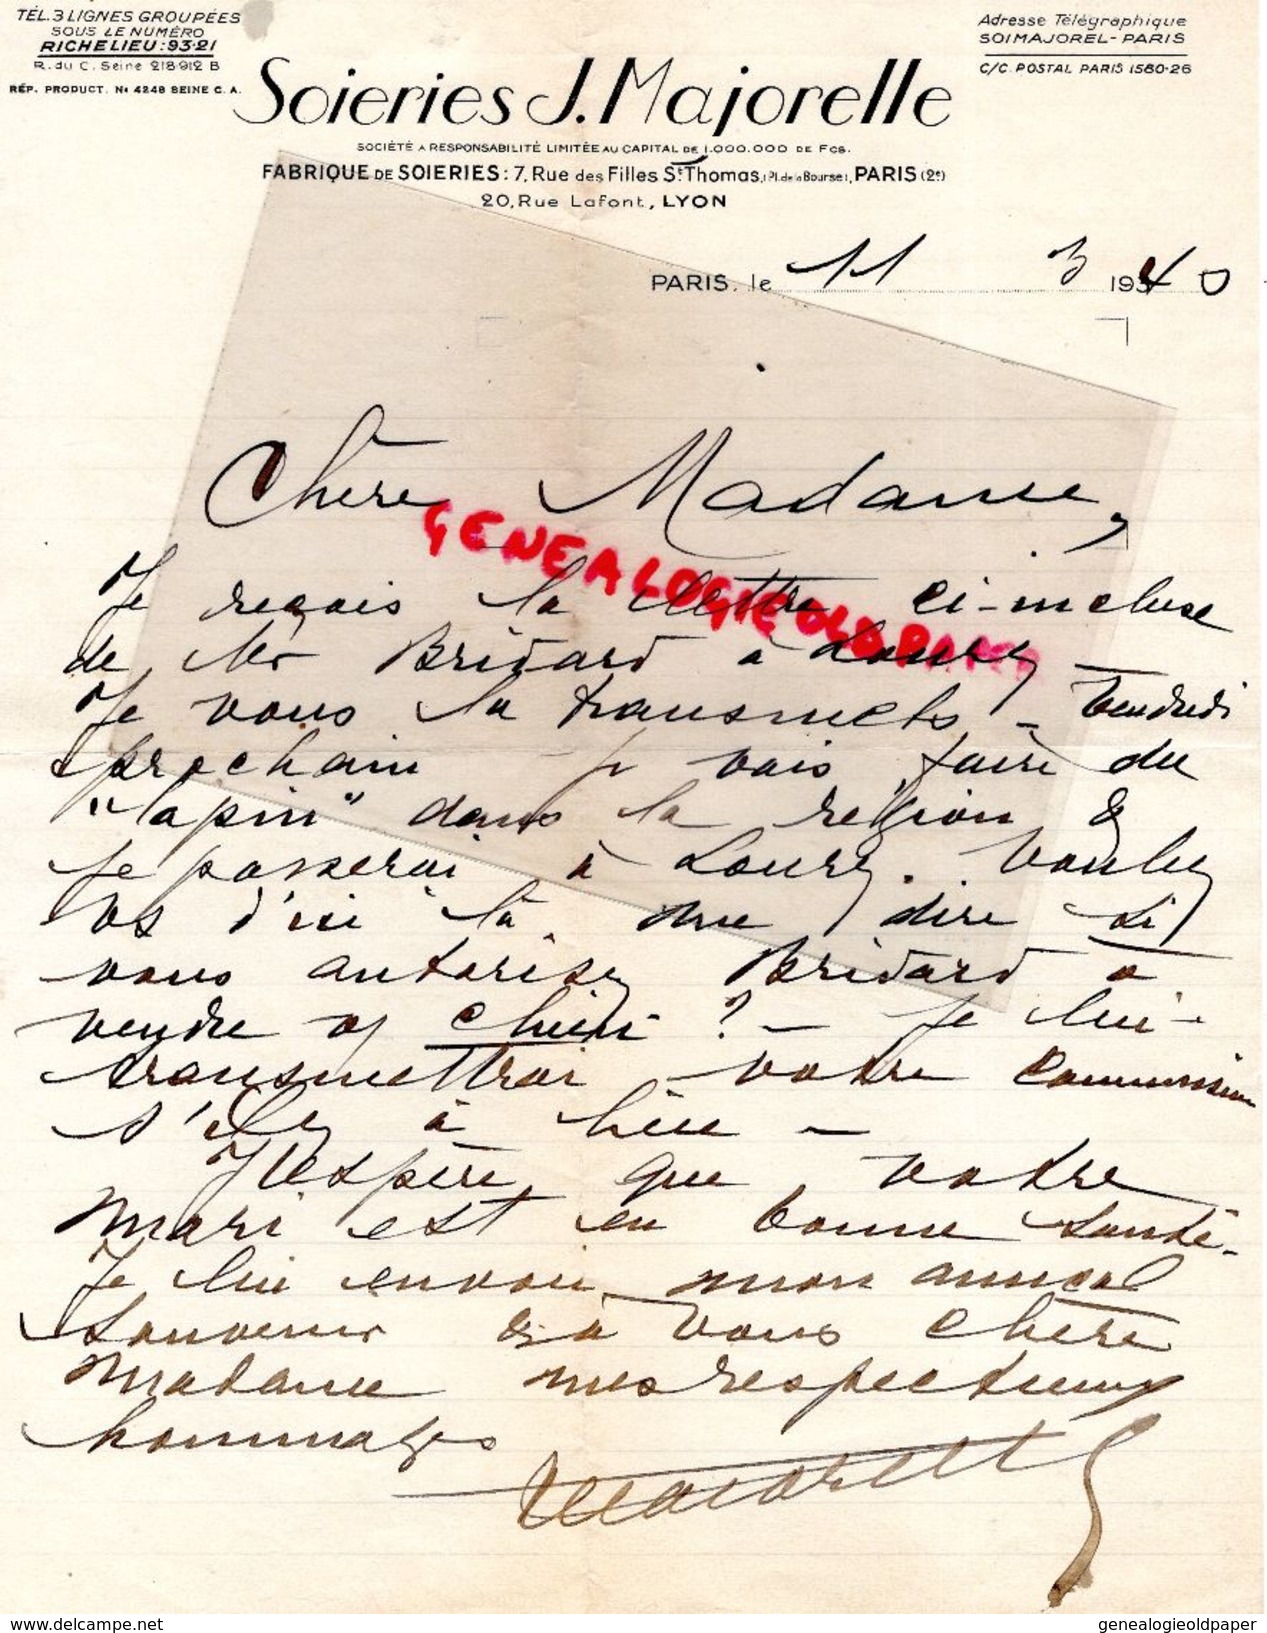 TÉL. 3 LIGNES GROUPÉES
SOUS LE NUMÉRO
RICHELIEU : 93-21
R. du C. Seine 218-912 B
RÉP. PRODUCT. No 4248 SEINE C. A.
Adresse Télégraphique
SOIMAJOREL - PARIS
C/C. POSTAL PARIS 1580-26
Soieries J. Majorelle
SOCIÉTÉ A RESPONSABILITÉ LIMITÉE AU CAPITAL DE 1.000.000 DE FCS.
FABRIQUE DE SOIERIES : 7, Rue des Filles St Thomas, (Pl. de la Bourse), PARIS (2e)
20, Rue Lafont, LYON
PARIS, le 11 3 1940
Chère Madame,
GENEALOGIEOLDPAPER
Je reçois la lettre ci-incluse
de Mr Bridard à Loury
Je vous la transmets - Vendredi
prochain je vais faire du
"lapin" dans la région &
je passerai à Loury. Voulez
vs d'ici là me dire si
vous autorisez Bridard à
vendre le chien ? - Je lui
transmettrai votre commission
s'il y a lieu -
J'espère que votre
mari est en bonne santé -
Je lui envoie mon amical
souvenir & à vous chère
Madame mes respectueux
hommages
Majorelle
www.delcampe.net
genealogieoldpaper